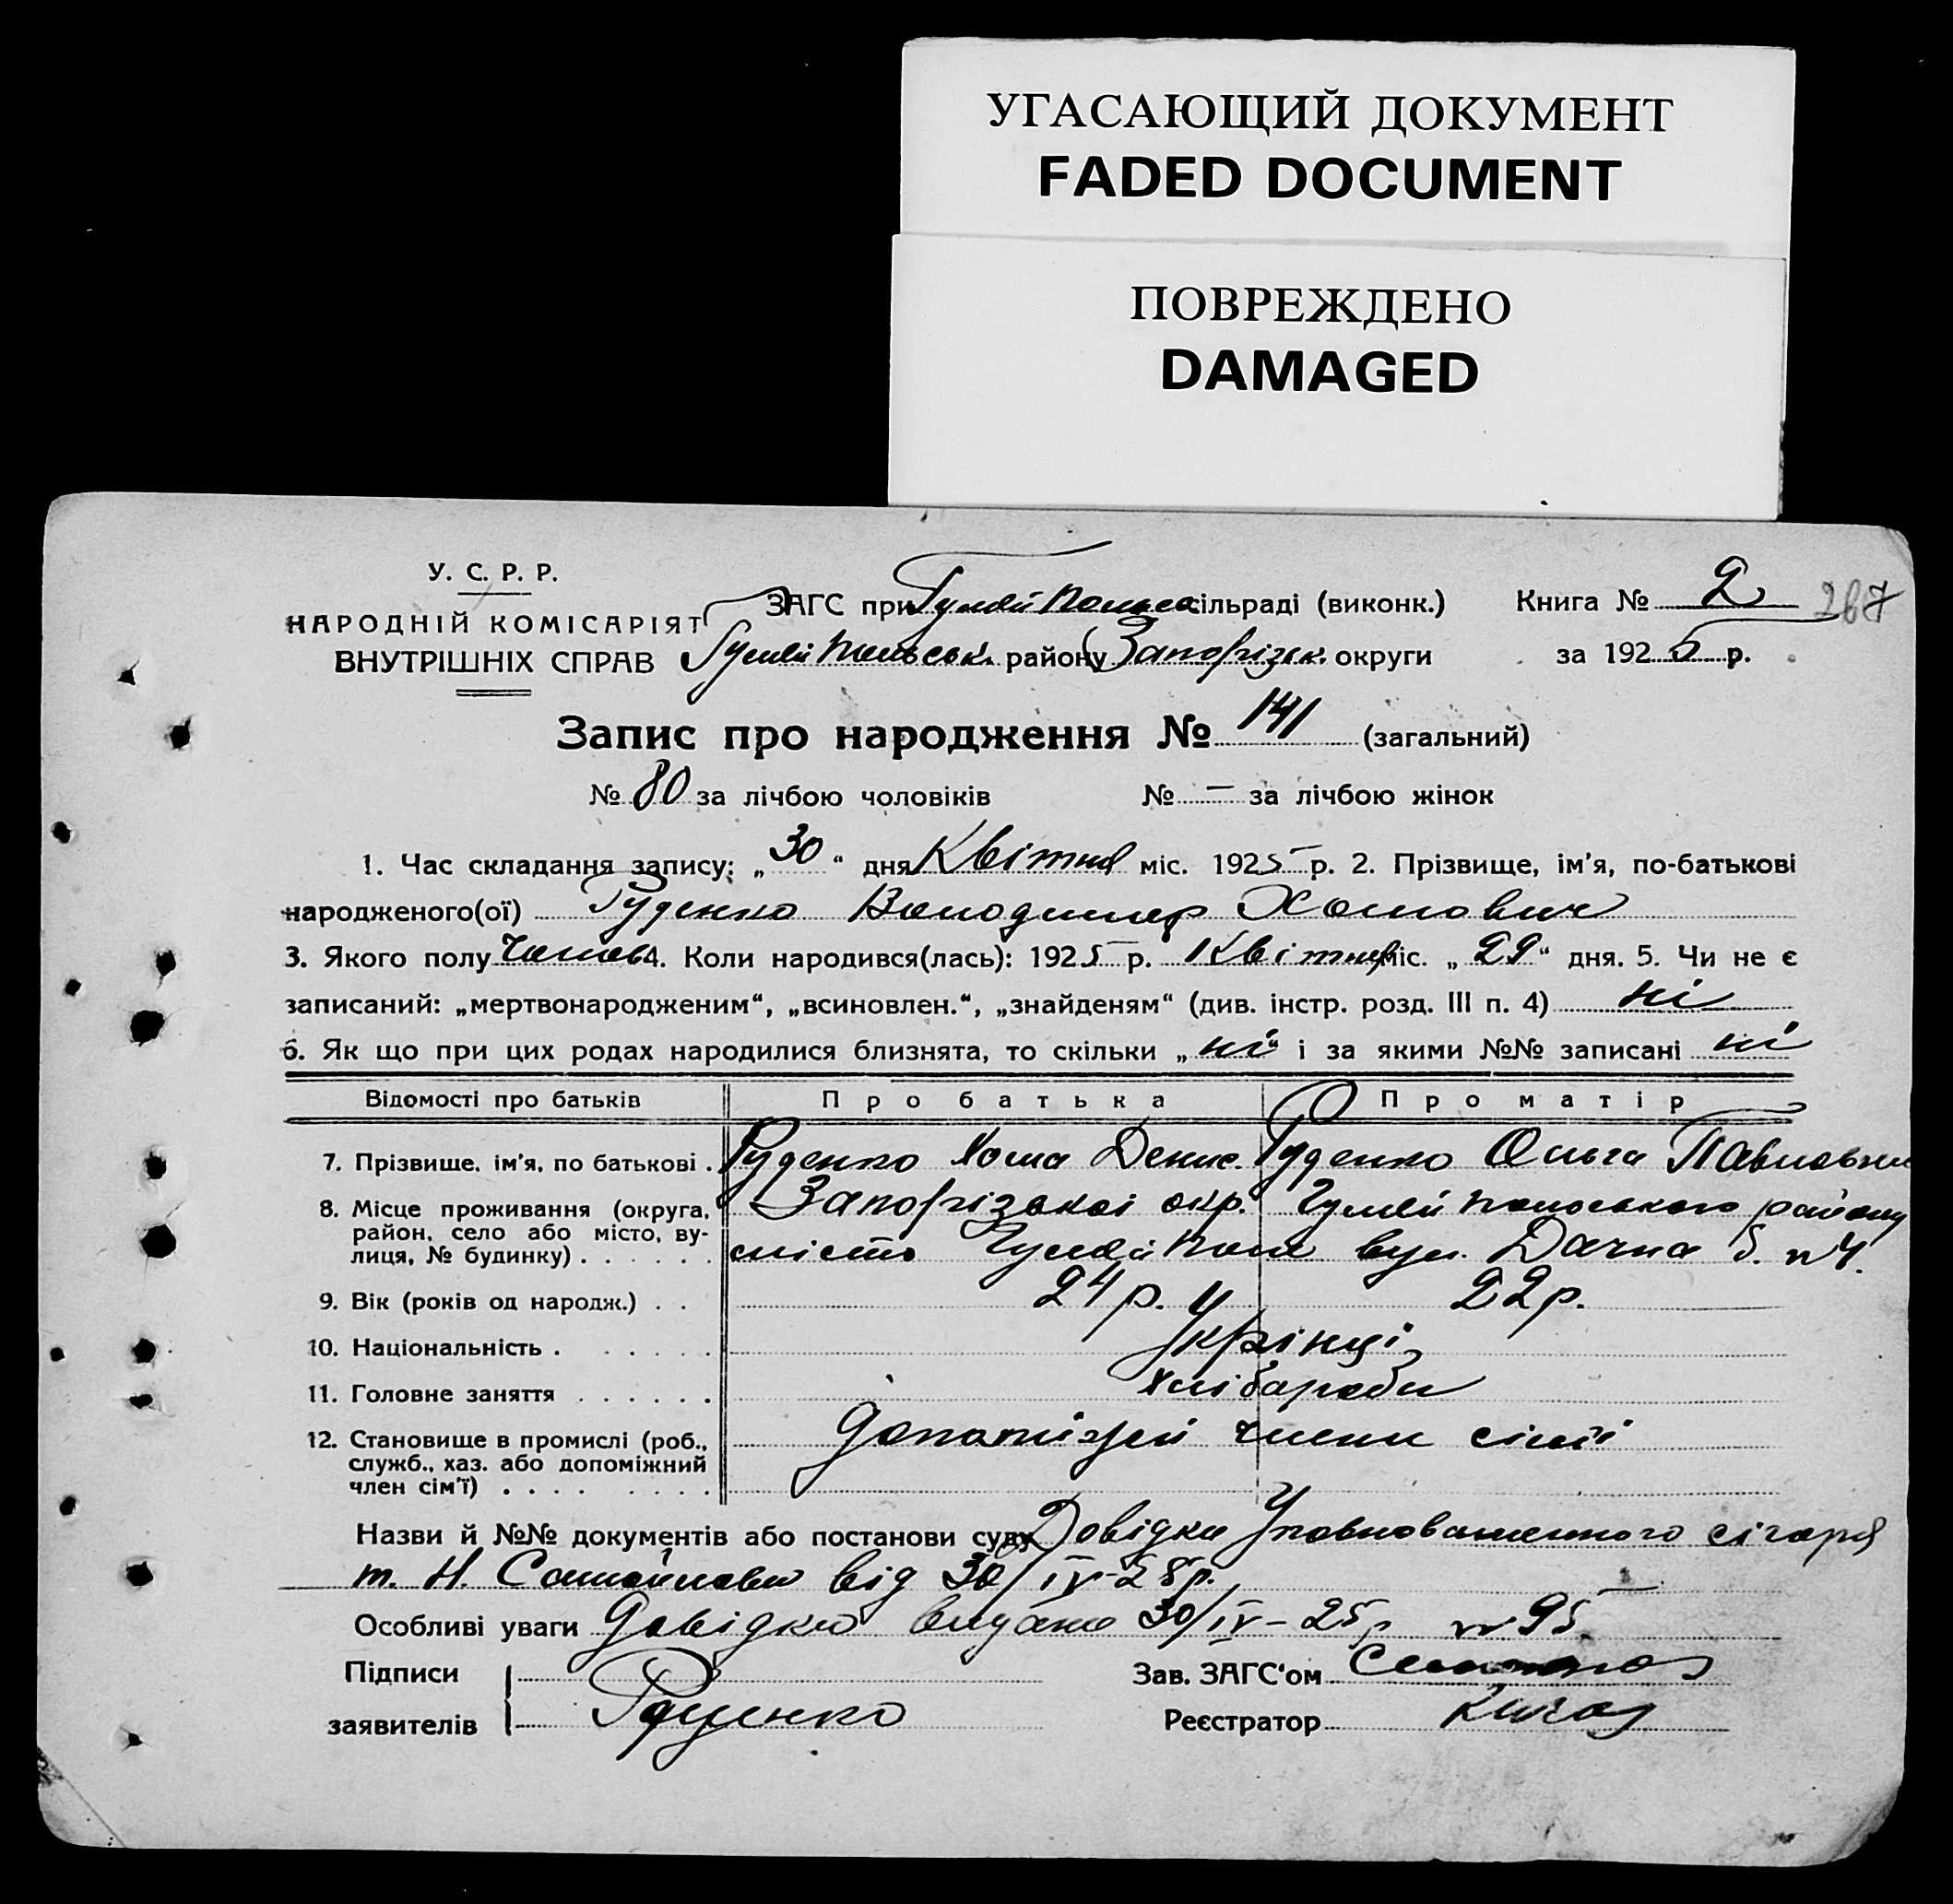 УГАСАЮЩИЙ ДОКУМЕНТ
FADED DOCUMENT
ПОВРЕЖДЕНО
DAMAGED
У. С. Р. Р.
НАРОДНІЙ КОМІСАРІЯТ
ВНУТРІШНІХ СПРАВ
ЗАГС при Гуляй Польськ сільраді (виконк.)
Гуляй Польськ. району Запорізьк. округи
Книга № 2 267
за 1925 р.
Запис про народження № 141 (загальний)
№ 80 за лічбою чоловіків № — за лічбою жінок
1. Час складання запису: „30“ дня Квітня міс. 1925 р. 2. Прізвище, ім'я, по-батькові
народженого(ої) Руденко Володимер Хомович
3. Якого полу Чолов 4. Коли народився(лась): 1925 р. Квітня міс. „29“ дня. 5. Чи не є
записаний: „мертвонародженим“, „всиновлен.“, „знайденям“ (див. інстр. розд. III п. 4) ні
6. Як що при цих родах народилися близнята, то скільки „ні“ і за якими №№ записані ні
Відомості про батьків Про батька Про матір
7. Прізвище, ім'я, по батькові . Руденко Хома Денис. Руденко Ольга Павловна
8. Місце проживання (округа, Запорізької окр. Гуляй Польського району
район, село або місто, ву-
лиця, № будинку) . . . . . . місто Гуляй Поле вул. Дачна б. №4.
9. Вік (років од народж.) . . 24 р. 22 р.
10. Національність . . . . . . Укрінці
11. Головне заняття . . . . . . Хлібароби
12. Становище в промислі (роб., допоміжні члени сімї
служб., хаз. або допоміжний
член сім'ї) . . . . . . . .
Назви й №№ документів або постанови суду Довідка Уповноваженного
т. Н. Самойлова від 30/IV-25р.
Особливі уваги Довідка видано 30/IV-25р №95
Підписи
заявителів Руденко
Зав. ЗАГС'ом
Реєстратор